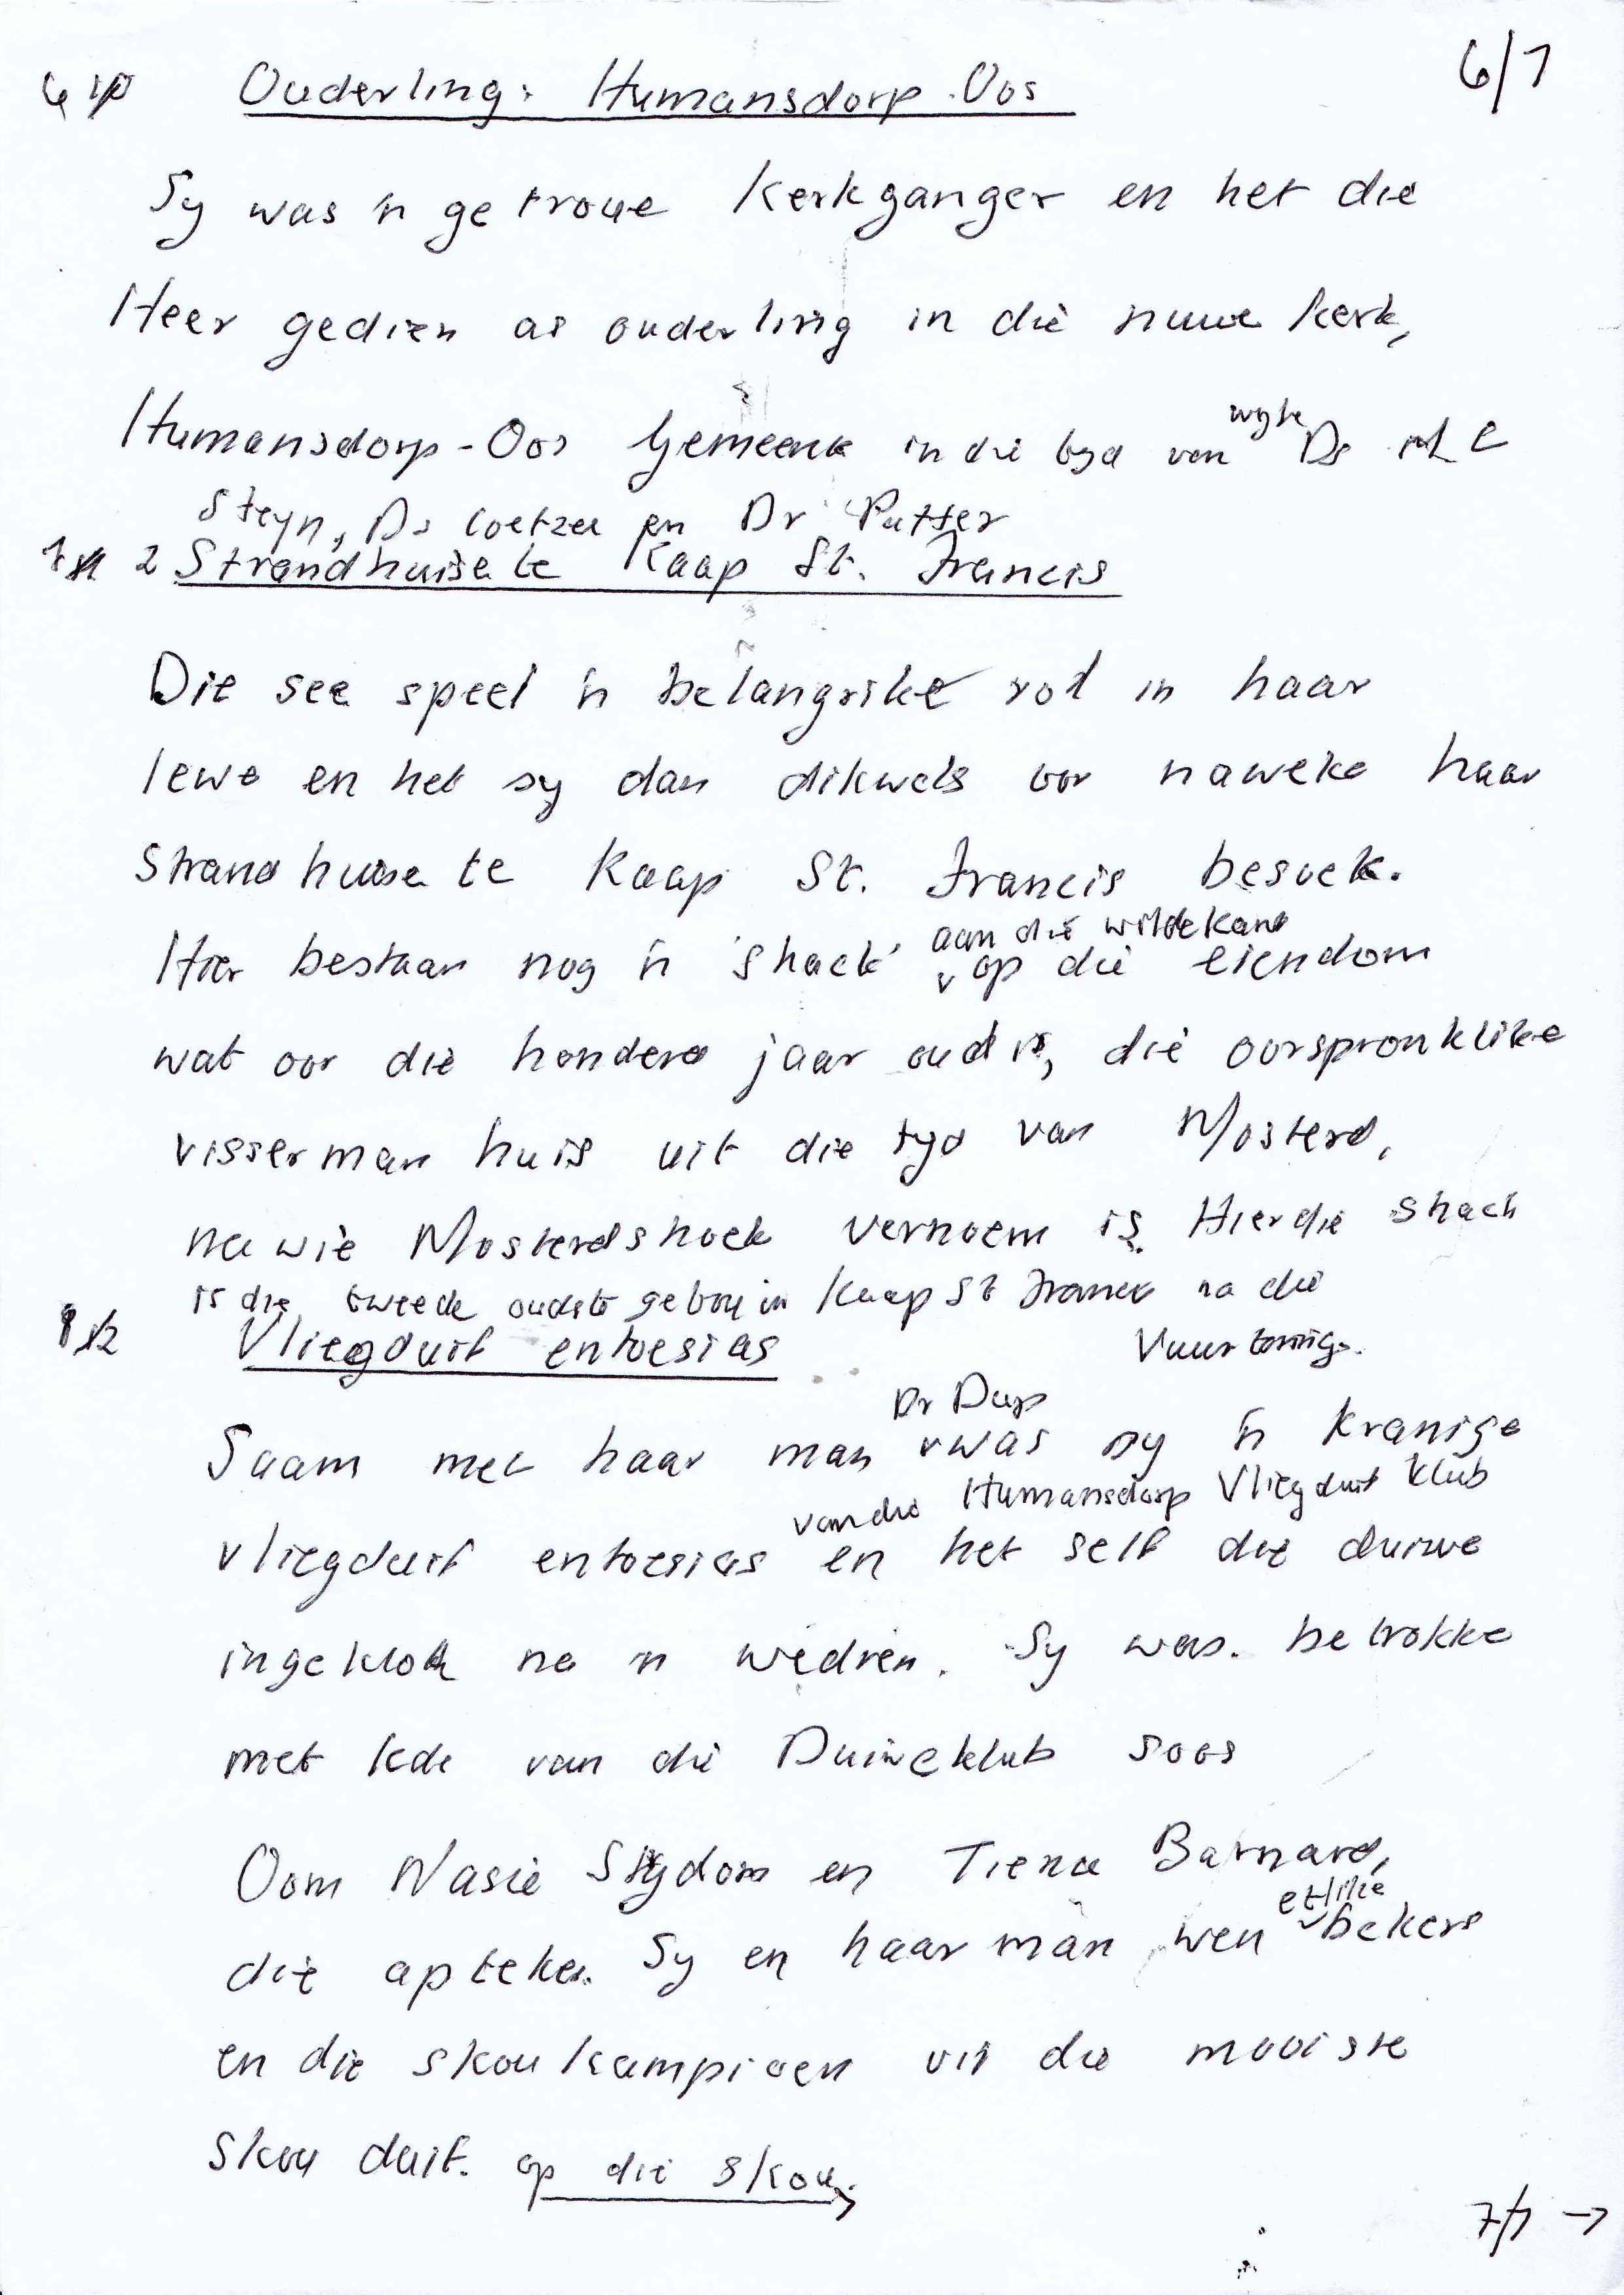 6/7
Ouderling: Humansdorp-Oos
Sy was 'n getroue Kerkganger en het die
Heer gedien as ouderling in die nuwe kerk,
wyle
Humansdorp-Oos Gemeente in die tyd van Ds M L C
Steyn, Ds Coetzee en Dr Putter
2 Strandhuise te Kaap St. Francis
Die see speel 'n belangrike rol in haar
lewe en het sy dan dikwels oor naweke haar
Strandhuise te Kaap St. Francis besoek.
aan die wildekant
Hier bestaan nog 'n 'shack' op die eiendom
wat oor die honderd jaar oud is, die oorspronklike
visserman huis uit die tyd van Mosterd,
na wie Mosterdshoek vernoem is. Hierdie shack
is die tweede oudste gebou in Kaap St Francis na die
Vuurtoring.
Vliegduif entoesias
Dr Dup
Saam met haar man was sy 'n kranige
van die Humansdorp Vliegduif Klub
vliegduif entoesias en het self die duiwe
ingeklok na 'n wedren. Sy was betrokke
met lede van die Duiweklub soos
Oom Nasie Strydom en Tiena Barnard,
etlike
die apteker. Sy en haar man wen bekers
en die skoukampioen vir die mooiste
Skou duif. op die skou.
7/7 →